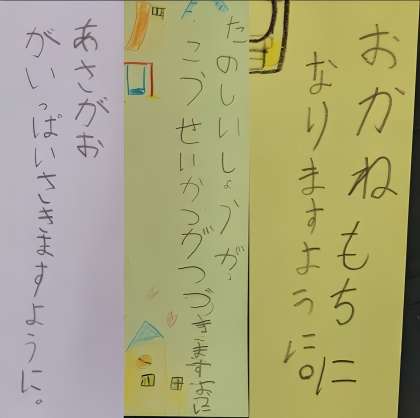 おかねもちに
なりますように。
たのしいしょうが
っこうせいかつがつづきますように
あさがお
がいっぱいさきますように。